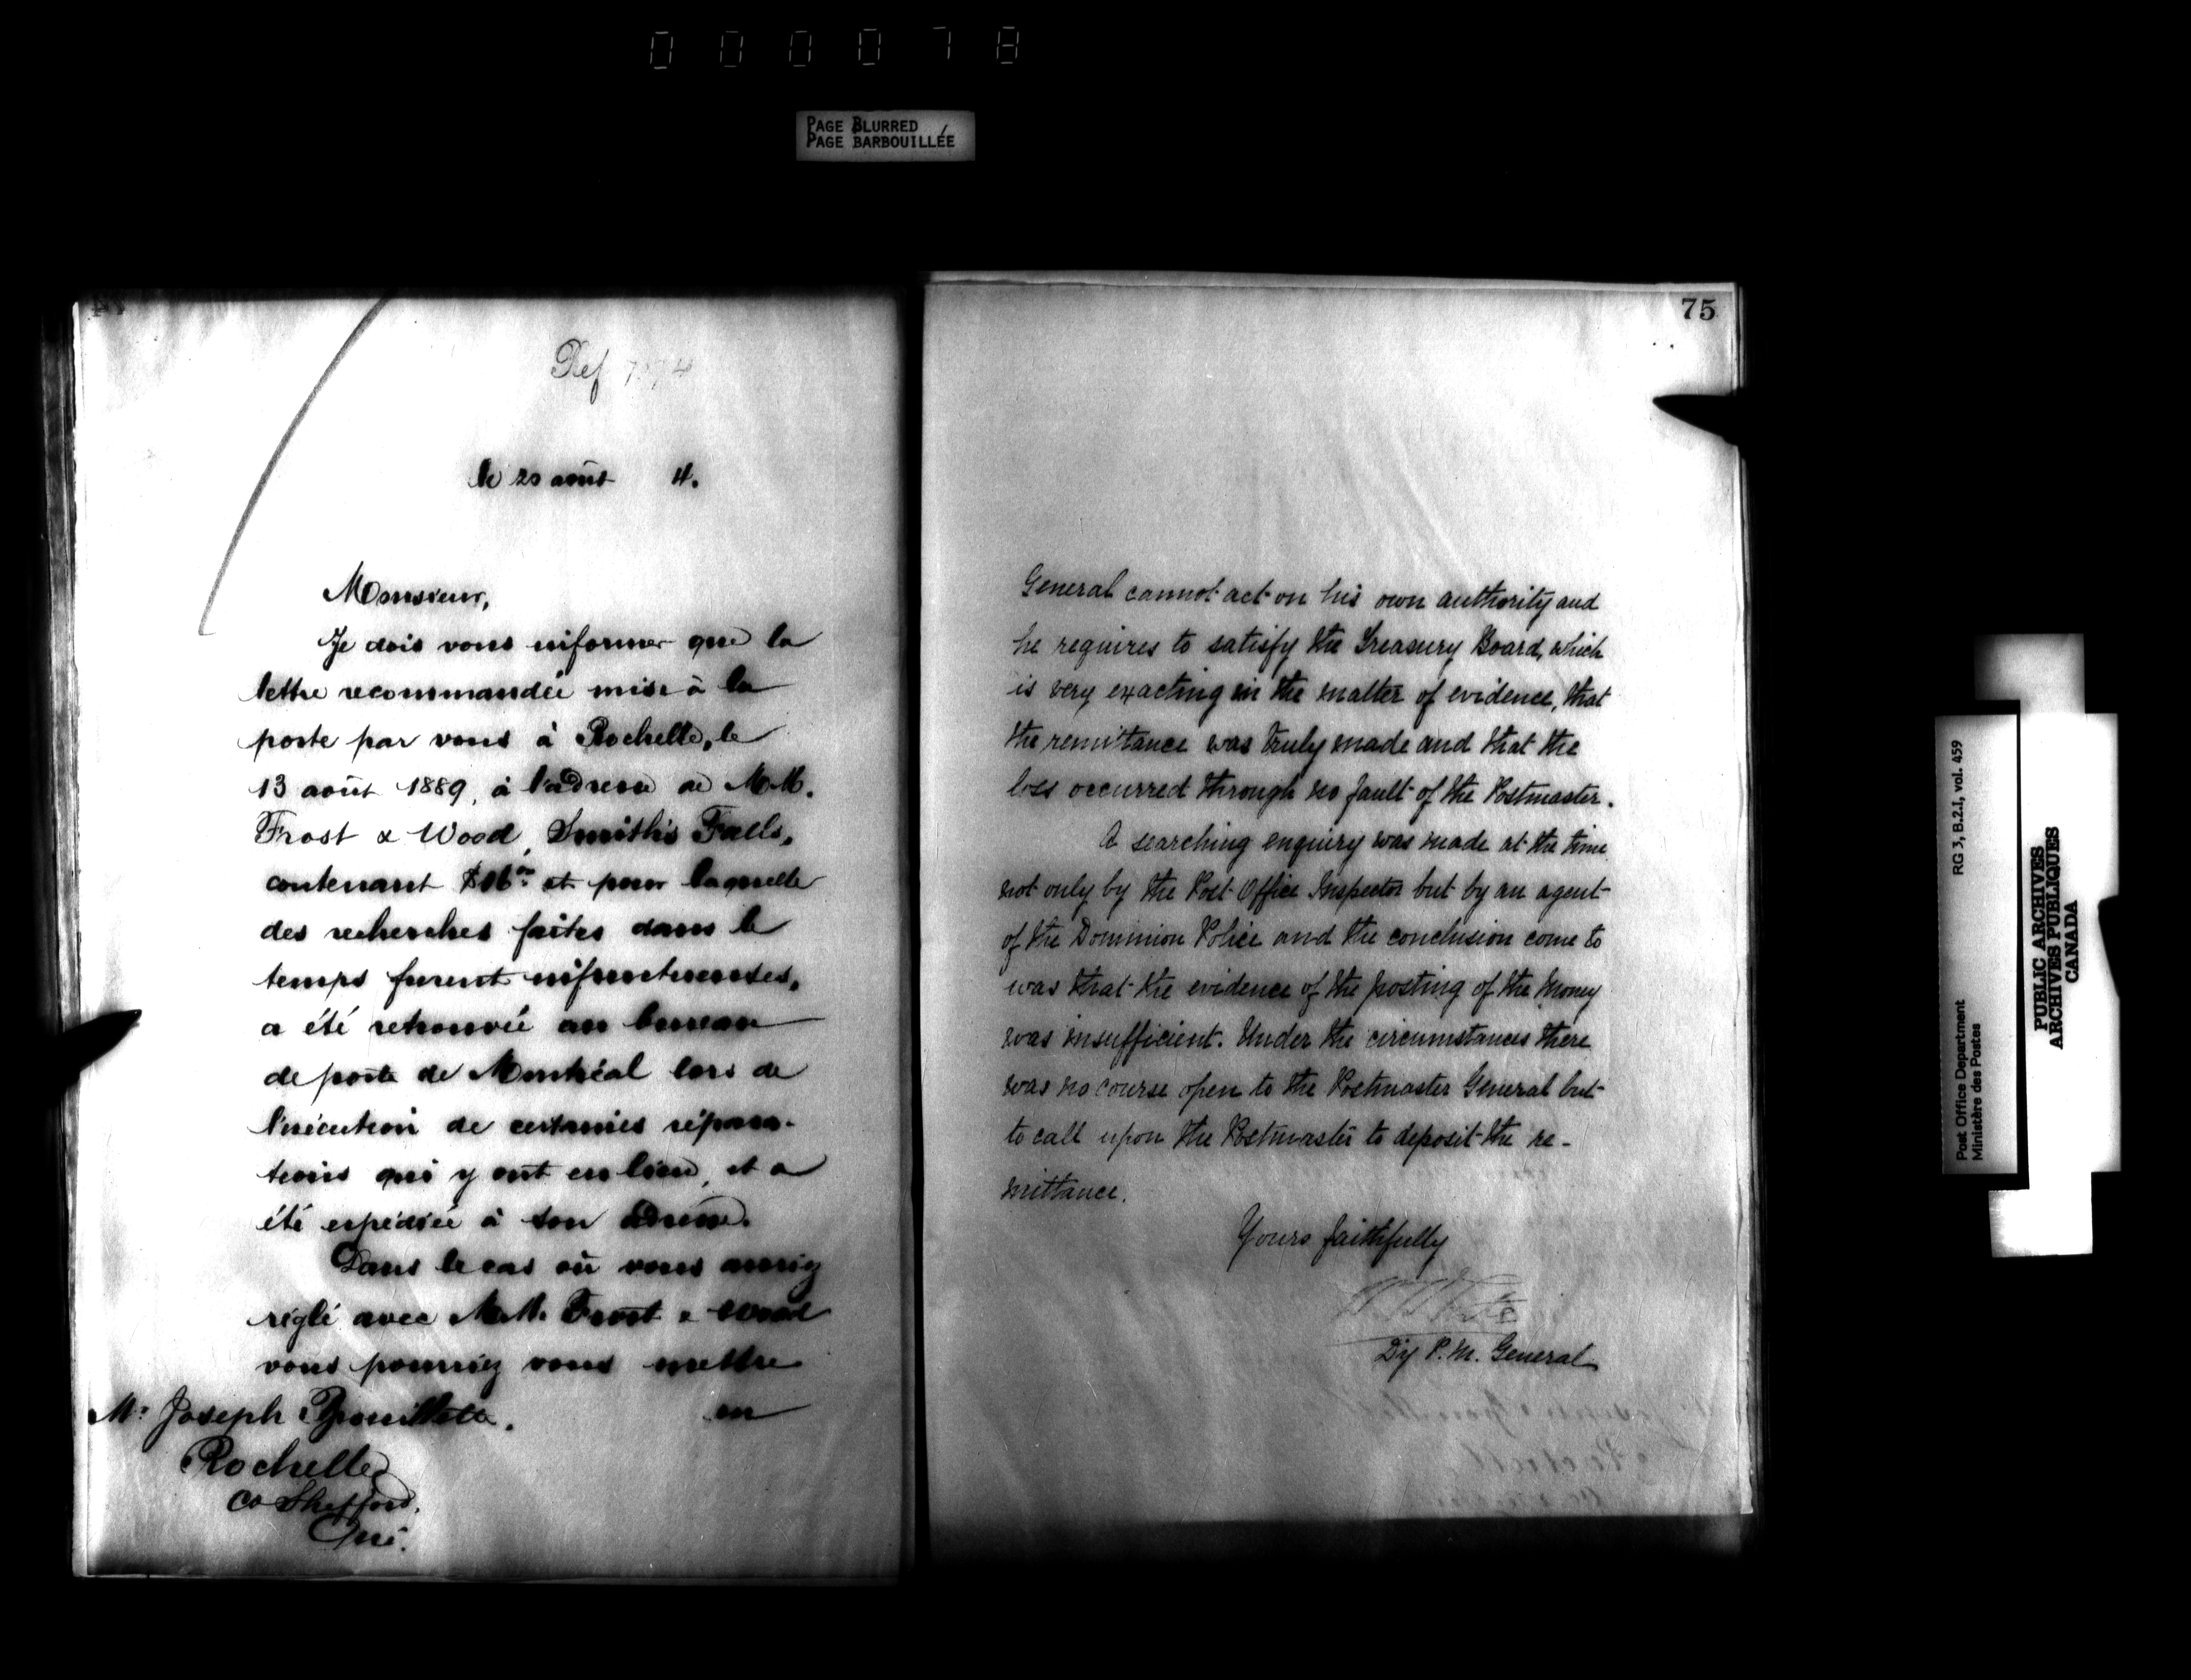 000078
PAGE BLURRED
PAGE BARBOUILLÉE
Ref
le 20 août 4.
Monsieur,
Je dois vous informer que la
lettre recommandée mise à la
poste par vous à Rochelle, le
13 août 1889, à l'adresse de MM.
Frost & Wood, Smith's Falls,
contenant et pour laquelle
des recherches faites dans le
temps furent infructueuses,
a été retrouvée au bureau
de poste de Montréal lors de
l'exécution de certaines répara-
tions qui y ont eu lieu, et a
été expédiée à son adresse.
Dans le cas où vous auriez
réglé avec MM. Frost & Wood
vous pourriez vous mettre
en
Mr Joseph
Rochelle
Co Shefford.
Qué.
75
General cannot act on his own authority and
he requires to satisfy the Treasury Board, which
is very exacting in the matter of evidence, that
the remittance was truly made and that the
loss occurred through no fault of the Postmaster.
A searching enquiry was made at the time
not only by the Post Office Inspector but by an agent
of the Dominion Police and the conclusion come to
was that the evidence of the posting of the money
was insufficient. Under the circumstances there
was no course open to the Postmaster General but
to call upon the Postmaster to deposit the re-
mittance.
Yours faithfully
Dy P. M. General
Post Office Department
Ministère des Postes
RG 3, B.2.I, vol. 459
PUBLIC ARCHIVES
ARCHIVES PUBLIQUES
CANADA